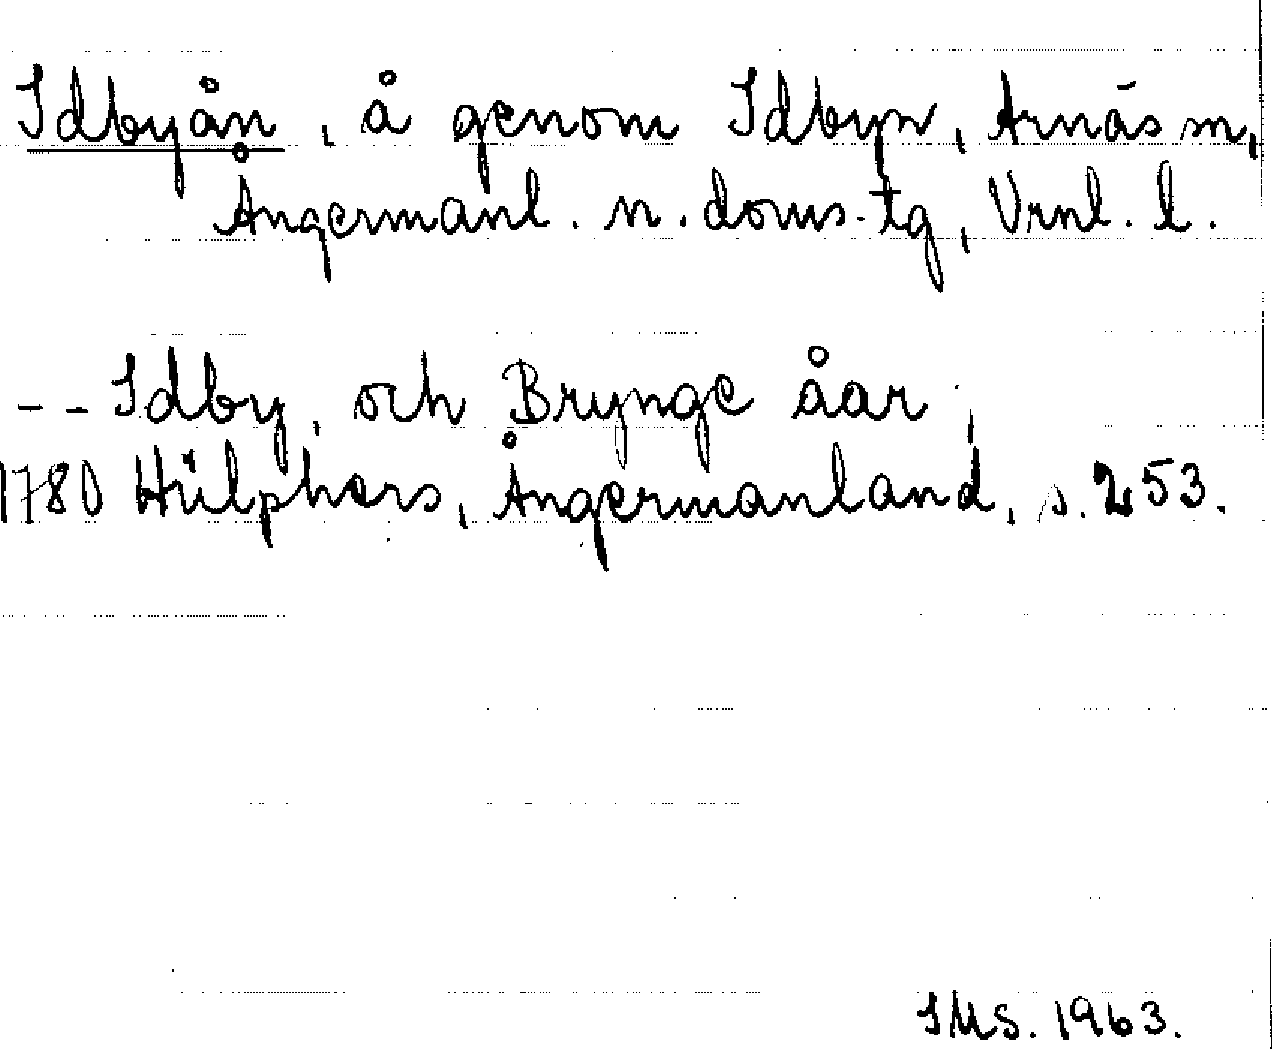 Idbyån, å genom Idbyn, Arnäs sn,
Ångermanl. n. doms-tg, Vrnl. l.
-- Idby, och Brynge åar;
1780 Hülphers, Ångermanland, s. 253.
IMS. 1963.